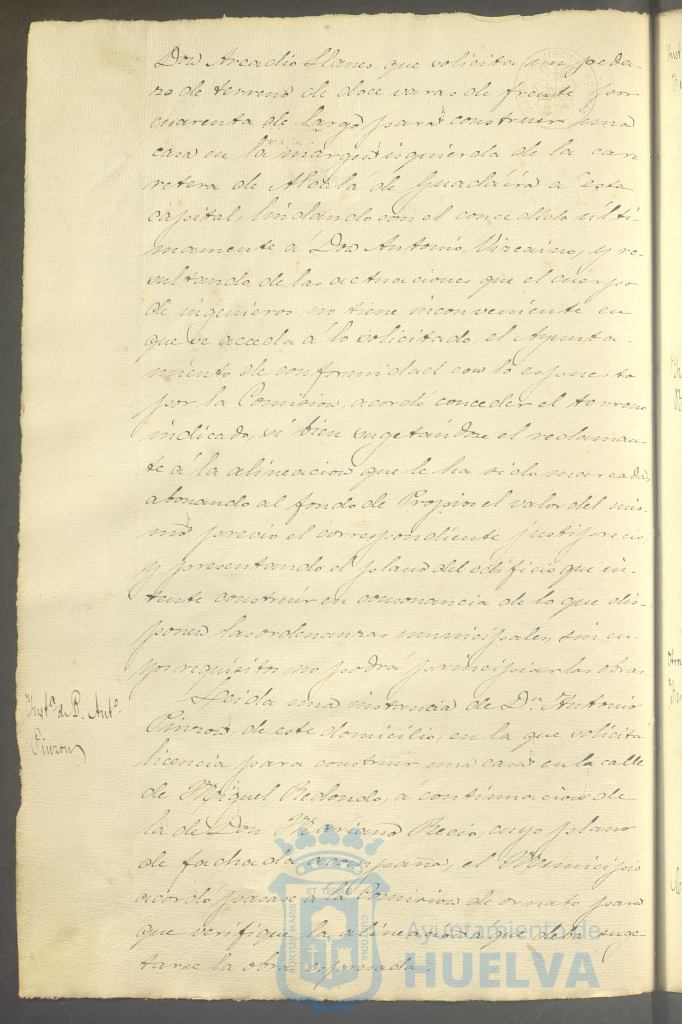 Don Arcadio Llanes, que solicita un peda-
zo de terreno de doce varas de frente por
cuarenta de largo para construir una
casa en la margen izquierda de la car-
retera de Alcalá de Guadaira a esta
capital, lindando con el concedido ulti-
mamente á Don Antonio Vizcaino, y re-
sultando de las actuaciones que el cuerpo
de ingenieros no tiene inconveniente en
que se acceda á lo solicitado, el Ayunta-
miento de conformidad con lo espuesto
por la Comision, acordó conceder el terreno
indicado, si bien sugetándose el reclaman-
te á la alineacion que le ha sido marcada,
abonando al fondo de Propios el valor del mis-
mo previo el correspondiente justiprecio
y presentando el plano del edificio que in-
tente construir en consonancia de lo que dis-
ponen las ordenanzas municipales, sin cu-
yos requisitos no podrá principiar las obras.
Inst.ª de D. Ant.º
Pinzon
Leida una instancia de D.n Antonio
Pinzon, de este domicilio, en la que solicita
licencia para construir una casa en la calle
de Miguel Redondo, á continuacion de
la de Don Mariano Recio, cuyo plano
de fachada acompaña, el Municipio
acordó pasase á la Comision de ornato para
que verifique la alineacion á que deba suge-
tarse la obra espresada.
Ayuntamiento de
HUELVA